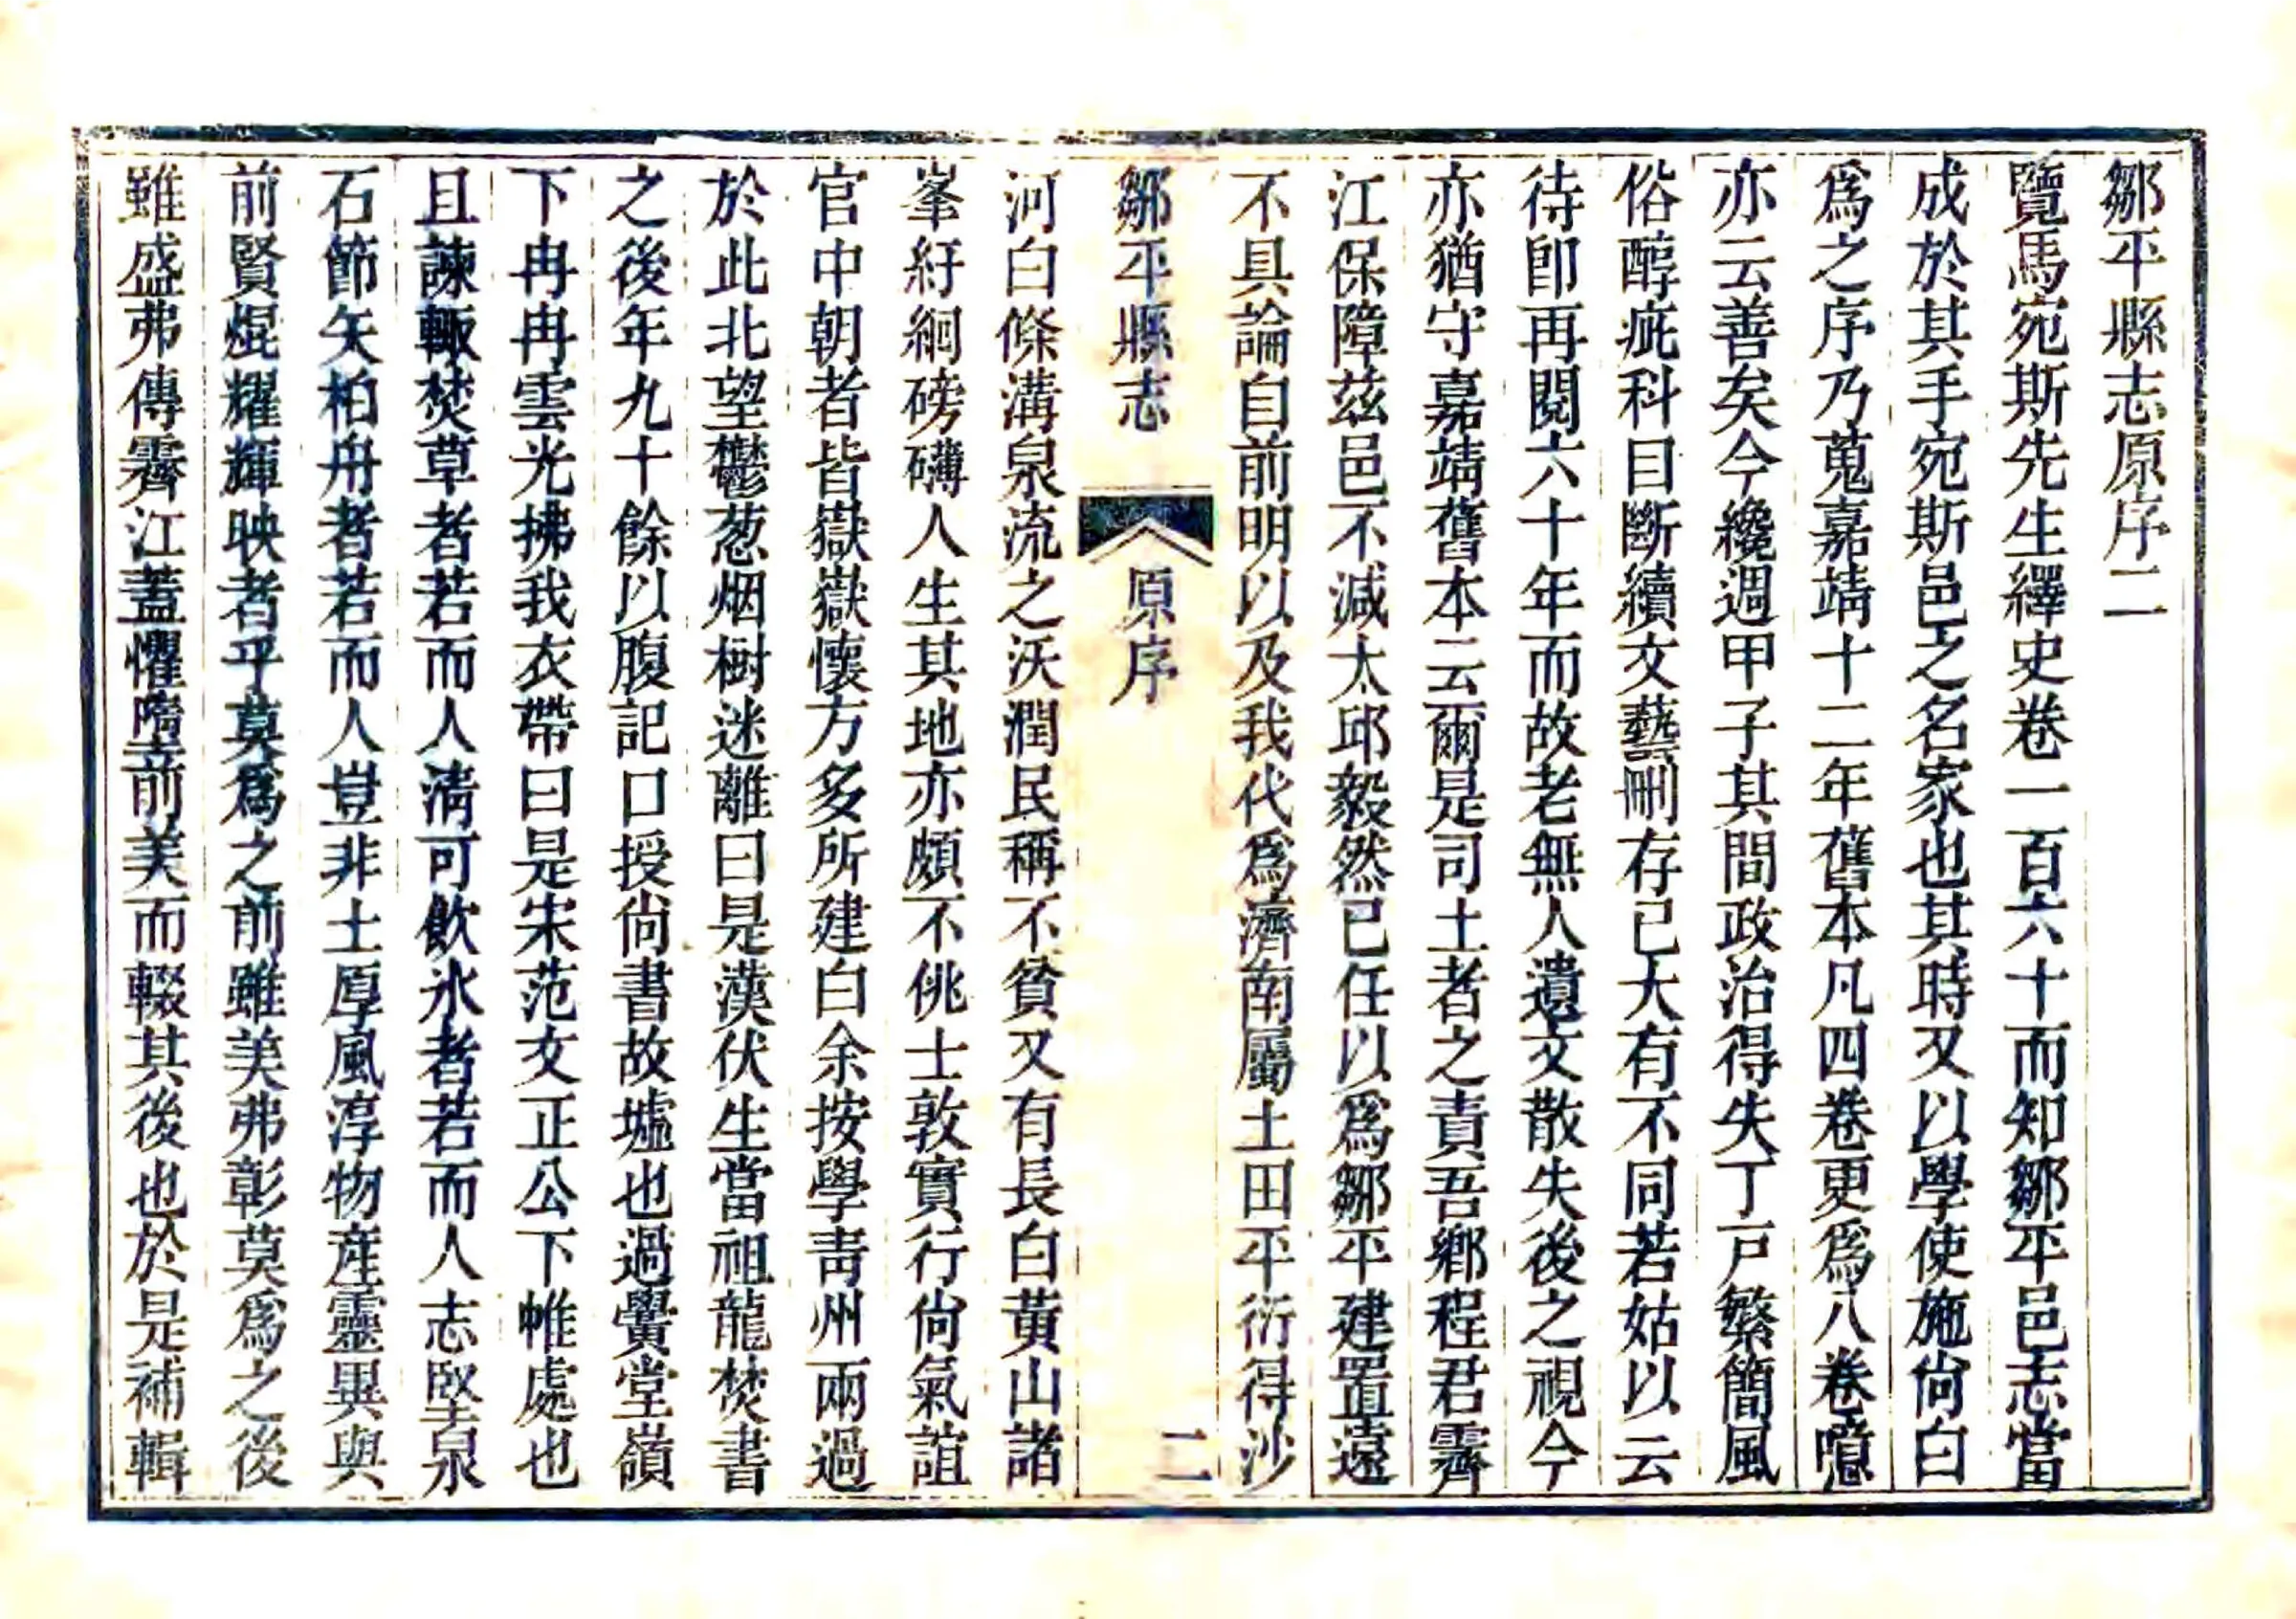 鄒平縣志原序二
覽馬宛斯先生繹史卷一百六十而知鄒平邑志當
成於其手宛斯邑之名家也其時又以學使施尙白
爲之序乃蒐嘉靖十二年舊本凡四卷更爲八卷噫
亦云善矣今纔週甲子其間政治得失丁戸繁簡風
俗醇疵科目斷續文藝刪存已大有不同若姑以云
待卽再閱六十年而故老無人遺文散失後之視今
亦猶守嘉靖舊本云爾是司土者之責吾鄉程君霽
江保障兹邑不減太邱毅然已任以爲鄒平建置遠
不具論自前明以及我代爲濟南屬土田平衍得沙
鄒平縣志
原序
二
河白條溝泉流之沃潤民稱不貧又有長白黃山諸
峯紆綱磅礴人生其地亦頗不佻士敦實行尙氣誼
官中朝者皆嶽嶽懷方多所建白余按學靑州兩過
於此北望鬱葱烟樹迷離曰是漢伏生當祖龍焚書
之後年九十餘以腹記口授尙書故墟也過黌堂嶺
下冉冉雲光拂我衣帶曰是宋范文正公下帷處也
且諫輙焚草者若而人淸可飮氷者若而人志堅泉
石節矢柏舟者若而人豈非土厚風淳物産靈異與
前賢焜耀輝映者乎莫爲之前雖美弗彰莫爲之後
雖盛弗傳霽江蓋懼隋前美而輟其後也於是補輯